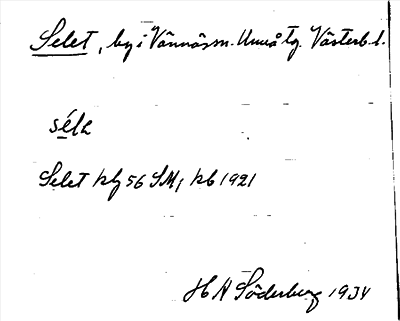 Selet, by i Vännäs sn. Umeå tg. Västerb. l.
sélɛ
Selet kbl 56 SM; kb 1921
H A Söderberg 1934